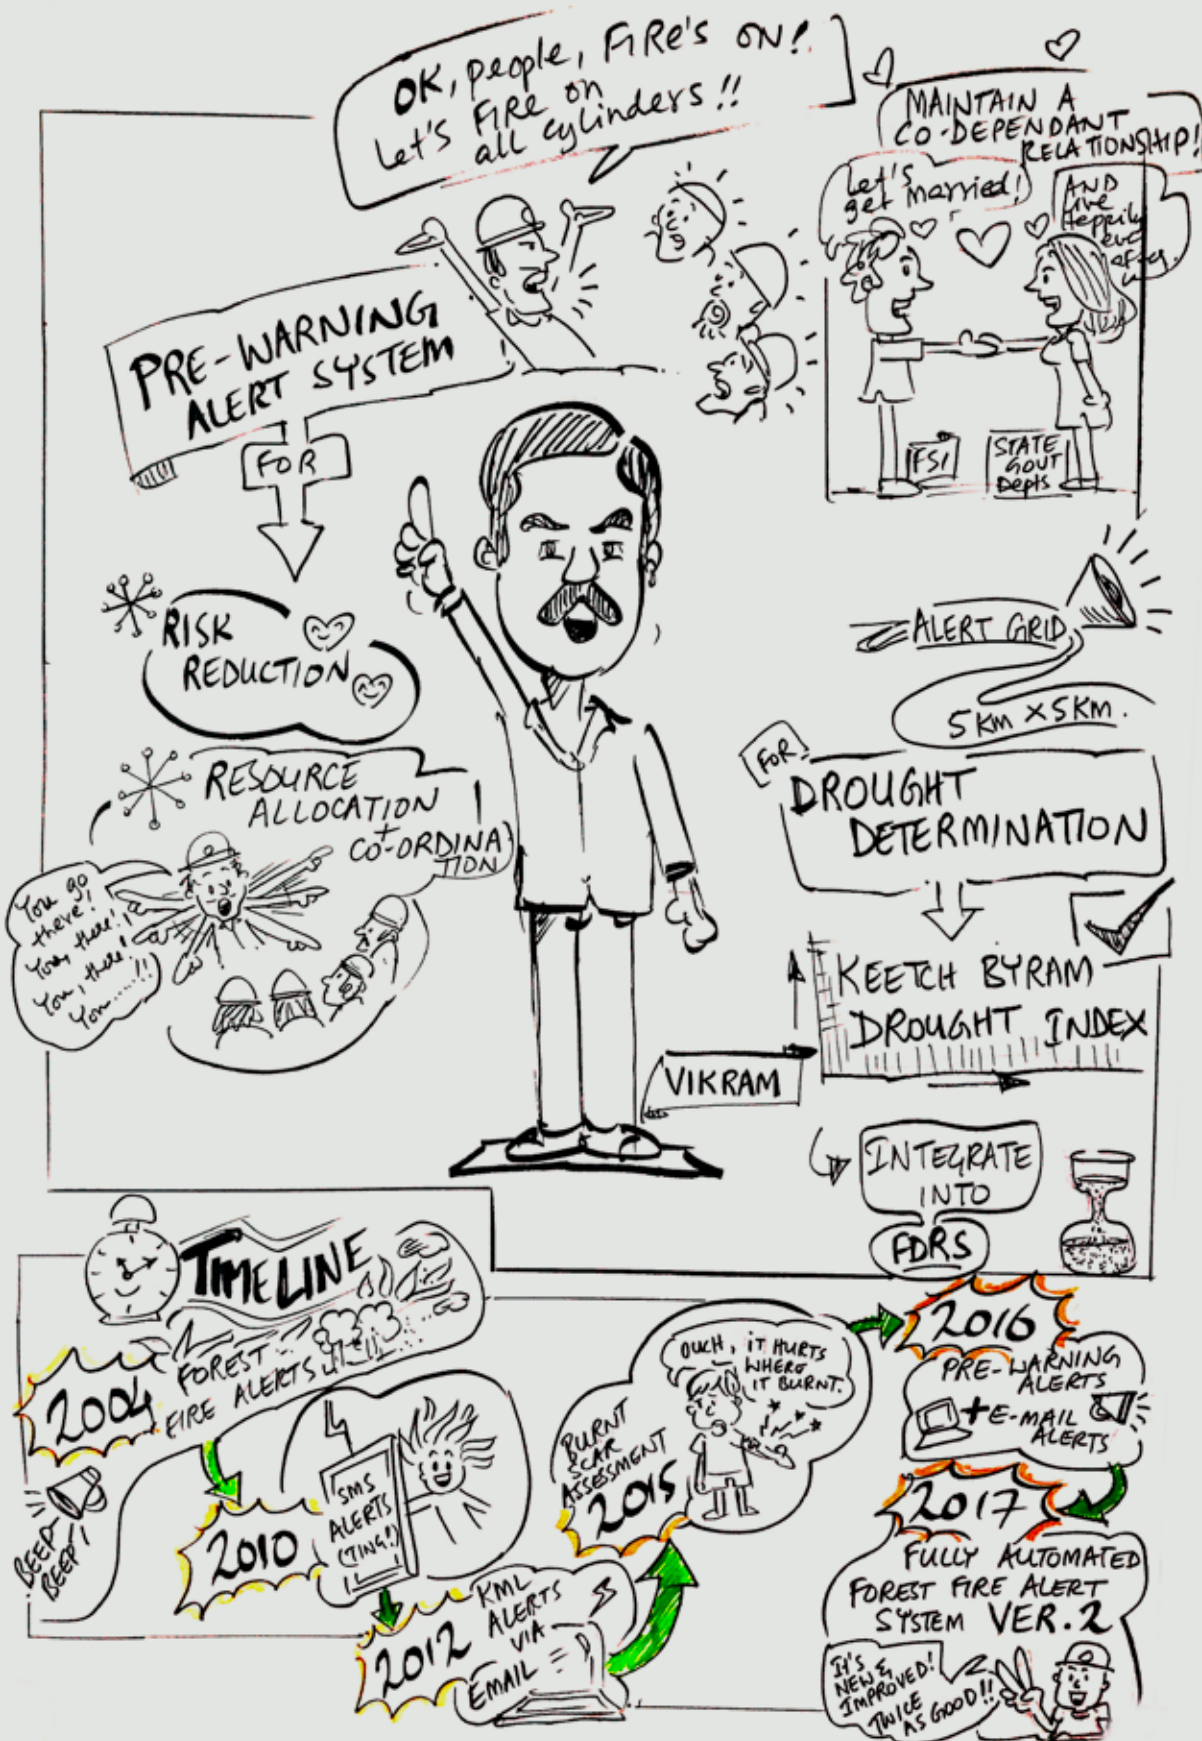 OK, people, FIRe's ON!
Let's FIRE on
all cylinders!!
MAINTAIN A
CO-DEPENDANT
RELATIONSHIP!
Let's
get married!
AND
live
Happily
ever
after
FSI
STATE
GOVT
Depts
PRE-WARNING
ALERT SYSTEM
FOR
RISK
REDUCTION
RESOURCE
ALLOCATION
+
CO-ORDINA
TION
You go
there!
You, there!!
You, there!
You.....!!
ALERT GRID
5 KM X 5 KM.
FOR
DROUGHT
DETERMINATION
KEETCH BYRAM
DROUGHT INDEX
VIKRAM
INTEGRATE
INTO
FDRS
TIMELINE
2004
FOREST
FIRE ALERTS
BEEP
BEEP!
2010
SMS
ALERTS
(TING!)
2012
KML
ALERTS
VIA
EMAIL
BURNT
SCAR
ASSESSMENT
2015
OUCH, IT HURTS
WHERE
IT BURNT.
2016
PRE-WARNING
ALERTS
+ E-MAIL
ALERTS
2017
FULLY AUTOMATED
FOREST FIRE ALERT
SYSTEM VER.2
IT'S
NEW &
IMPROVED!
TWICE
AS GOOD!!